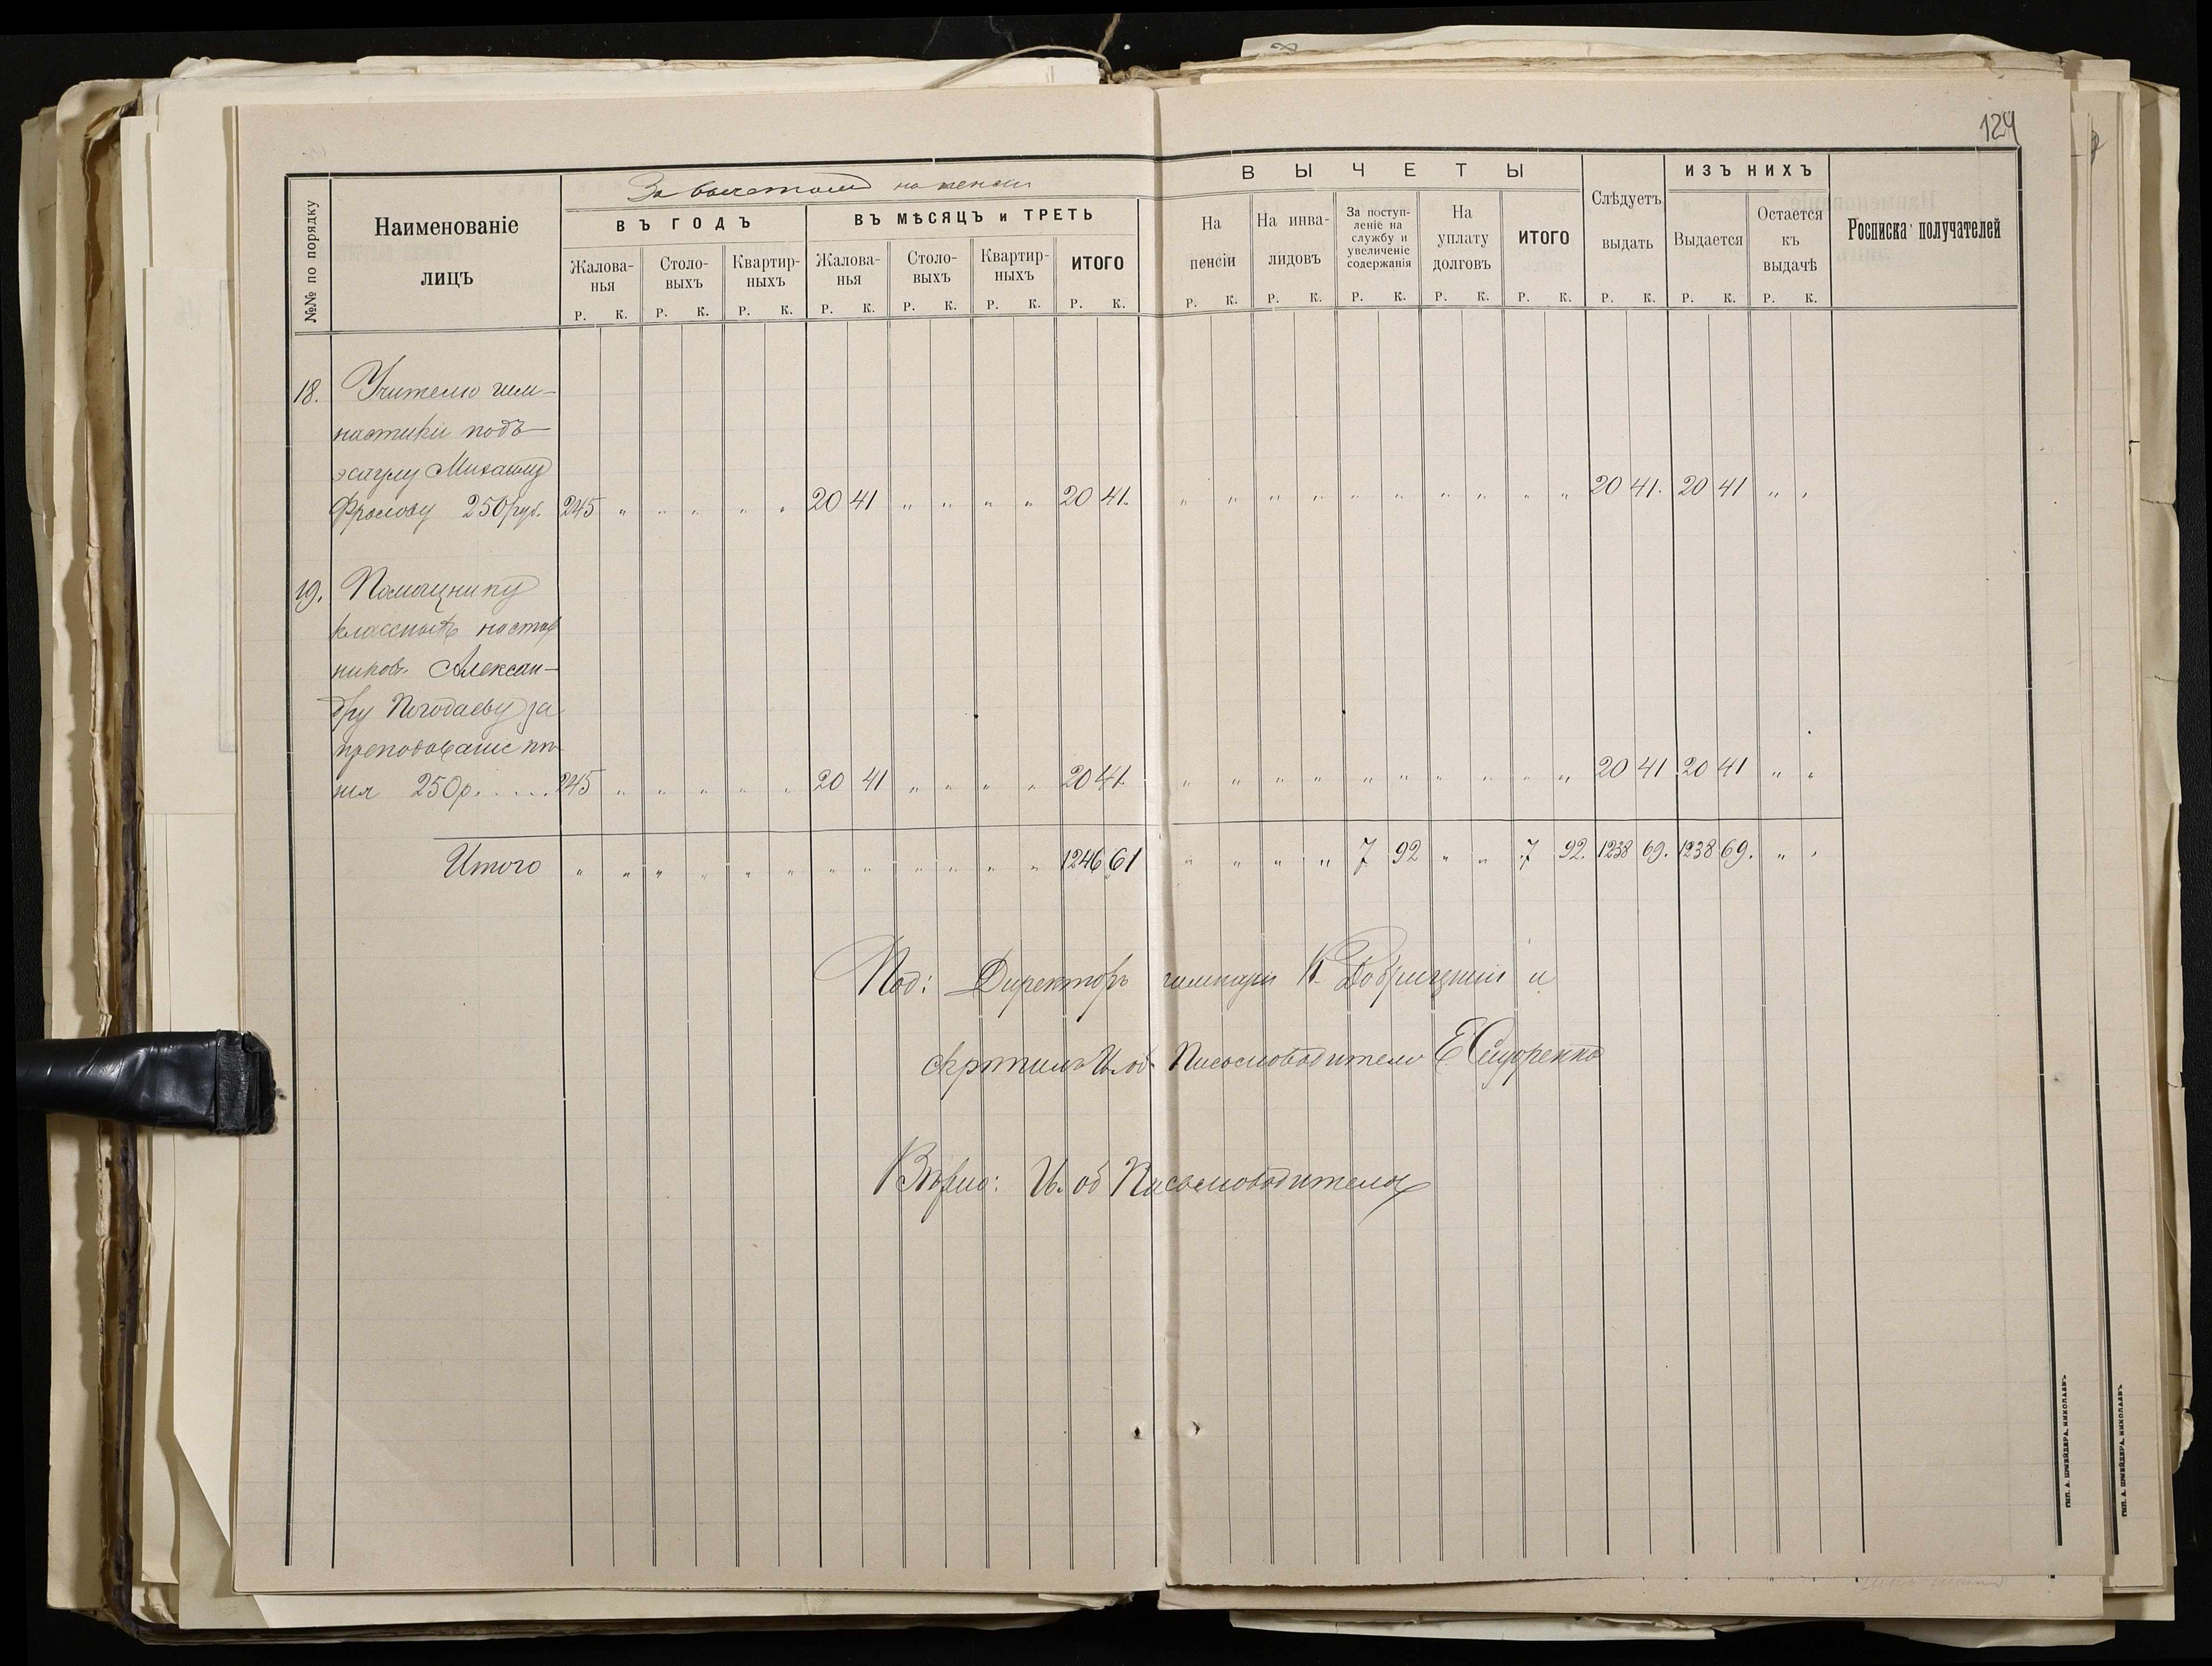 124
За вычетомъ на пенсіи
№№ по порядку
Наименованіе
лицъ
ВЪ ГОДЪ
ВЪ МѢСЯЦЪ и ТРЕТЬ
Жалова-
нья
Столо-
выхъ
Квартир-
ныхъ
Жалова-
нья
Столо-
выхъ
Квартир-
ныхъ
ИТОГО
Р. К. Р. К. Р. К. Р. К. Р. К. Р. К. Р. К.
ВЫЧЕТЫ
На
пенсіи
На инва-
лидовъ
За поступ-
леніе на
службу и
увеличеніе
содержанія
На
уплату
долговъ
ИТОГО
Слѣдуетъ
выдать
ИЗЪ НИХЪ
Выдается
Остается
къ
выдачѣ
Росписка получателей
Р. К. Р. К. Р. К. Р. К. Р. К. Р. К. Р. К. Р. К.
18. Учителю гим-
настики подъ-
эсаулу Михаилу
Фролову 250 руб. 245 " " " " " 20 41 " " " " 20 41. " " " " " " " " " " 20 41. 20 41 " "
19. Помощнику
классныхъ настав
никовъ Алексан-
дру Погодаеву за
преподованіе пѣ-
нія 250 р. . . . . 245 " " " " " 20 41 " " " " 20 41. " " " " " " " " " " 20 41 20 41 " "
Итого " " " " " " " " " " " " 1246 61 " " " " 7 92 " " 7 92. 1238 69. 1238 69. " "
Под: Директоръ гимназіи К. и
скрѣпилъ И. об. Письмоводителя Е Сидоренко
Вѣрно: И. об Письмоводителя
ТИП. А. ШНЕЙДЕРА, НИКОЛАЕВЪ.
ТИП. А. ШНЕЙДЕРА, НИКОЛАЕВЪ.